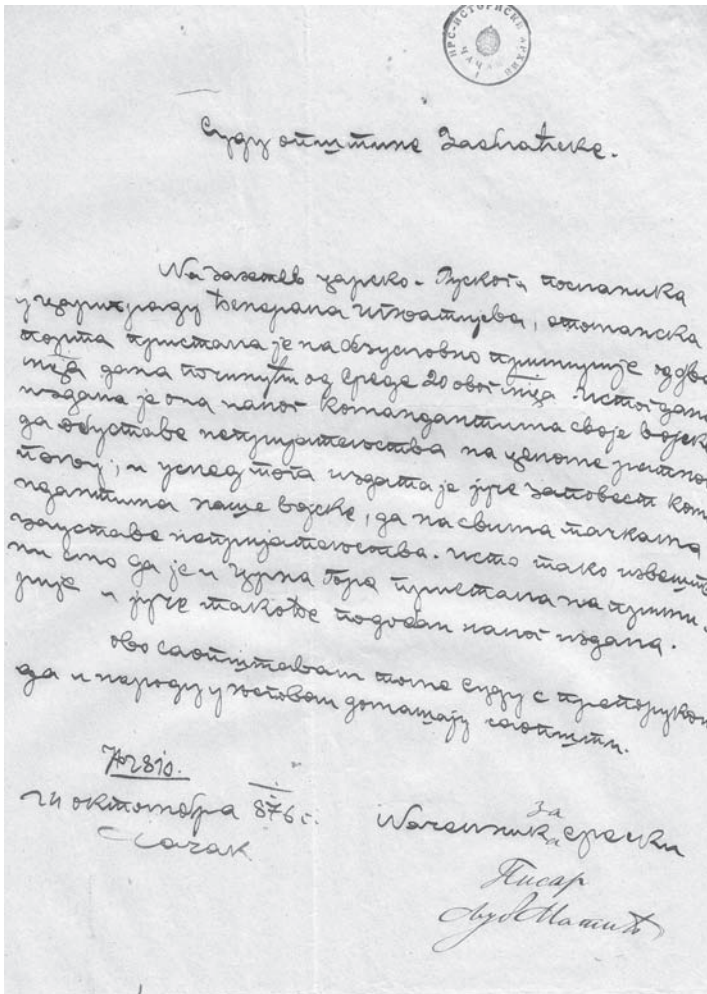 НРС-ИСТОРИСКИ АРХИВ
ЧАЧАК
Суду општине Заблаћске.
На захтев царско-Руског посланика
у Цариграду Ђенерала Игњатијева, отоманска
порта пристала је на безусловно примирије од два
м͞ца дана починући од Среде 20 овог м͞ца. Истог дана
издала је она налог Командантима своје војске
да обуставе непријатељства на целоме ратном
пољу, и услед тога издата је јуче заповест Кома
ндантима наше војске, да на свима тачкама
зауставе непријатељства. Исто тако извешће
ни смо да је и Црна Гора пристала на прими-
рије и јуче такође подобан налог издала.
Ово саопштавам томе Суду с препоруком
да и народу у његовом домашају саопшти.
№ 7810.
21 октомбра 876 г.
Чачак
за
Начелника срески
Писар
Љуб Матић